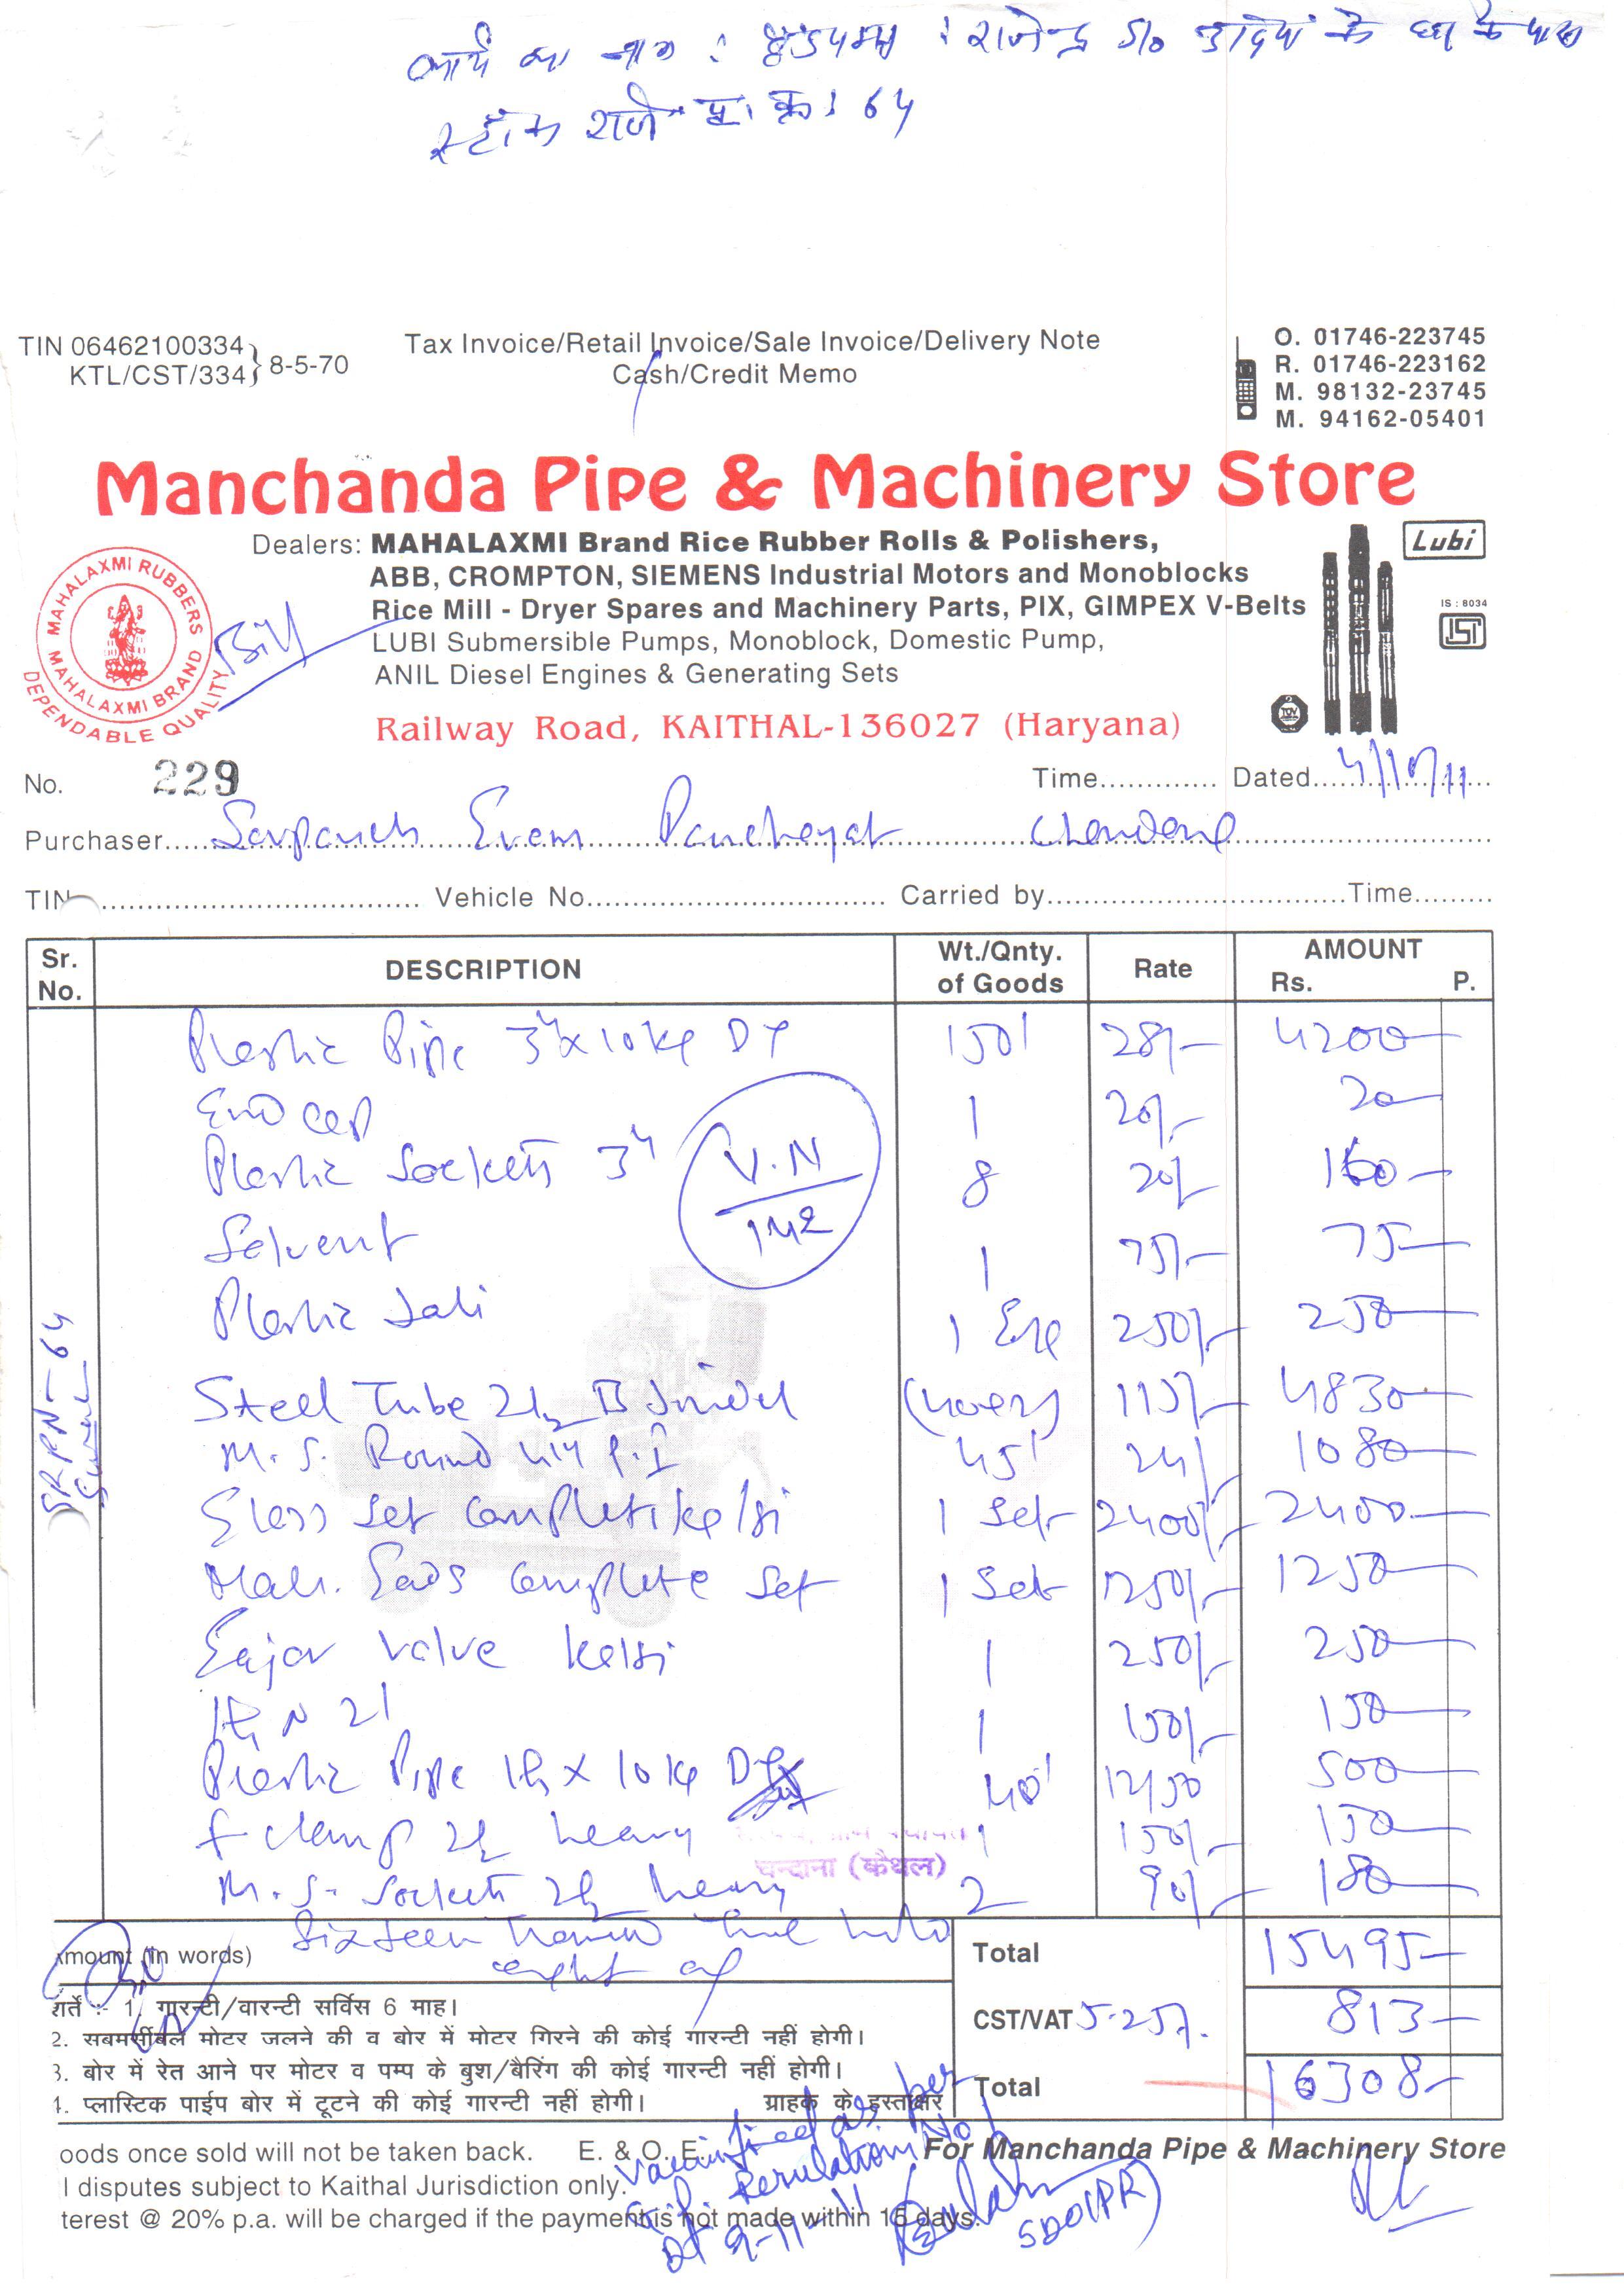 कार्य का नाम : हैंडपम्प : राजेन्द्र S/o के घर के पास
स्टॉक राजि० पृ. क्र. 64
TIN 06462100334
KTL/CST/334 } 8-5-70
Tax Invoice/Retail Invoice/Sale Invoice/Delivery Note
Cash/Credit Memo
O. 01746-223745
R. 01746-223162
M. 98132-23745
M. 94162-05401
Manchanda Pipe & Machinery Store
Dealers: MAHALAXMI Brand Rice Rubber Rolls & Polishers,
ABB, CROMPTON, SIEMENS Industrial Motors and Monoblocks
Rice Mill - Dryer Spares and Machinery Parts, PIX, GIMPEX V-Belts
LUBI Submersible Pumps, Monoblock, Domestic Pump,
ANIL Diesel Engines & Generating Sets
Railway Road, KAITHAL-136027 (Haryana)
MAHALAXMI RUBBERS
MAHALAXMI BRAND
DEPENDABLE QUALITY
Bill
Lubi
IS : 8034
ISI
TUV
No. 229 Time............. Dated....4/10/11
Purchaser.... Sarpanch Gram Panchayat Chandana
TIN................ Vehicle No................ Carried by................Time.........
Sr. No. DESCRIPTION Wt./Qnty. of Goods Rate AMOUNT Rs. P.
Plastic Pipe 3"x10kg 150' 28/- 4200
End Cap 1 20/- 20
Plastic Sockets 3" 8 20/- 160
V.N
142
Solvent 1 75/- 75
Plastic Jali 1 250/- 250
Steel Tube 2½ B Jindal 115/- 4830
M.S. Round 45' 24/- 1080
Set Complete 1 Set 2400/- 2400
Complete Set 1 Set 1250/- 1250
Valve 1 250/- 250
1 150/- 150
Plastic Pipe 1½ x 10 kg 40' 12/50 500
clamp 2½ heavy 1 150/- 150
M.S. Sockets 2½ heavy 2 90/- 180
SRPN-64
चन्दाना (कैथल)
Amount (in words) Sixteen Three
eight
Total 15495
CST/VAT 5.25%. 813
Total 16308
शर्तें :- 1. गारन्टी/वारन्टी सर्विस 6 माह।
2. सबमर्सीबल मोटर जलने की व बोर में मोटर गिरने की कोई गारन्टी नहीं होगी।
3. बोर में रेत आने पर मोटर व पम्प के बुश/बैरिंग की कोई गारन्टी नहीं होगी।
1. प्लास्टिक पाईप बोर में टूटने की कोई गारन्टी नहीं होगी। ग्राहक के हस्ताक्षर
oods once sold will not be taken back. E. & O. E.
l disputes subject to Kaithal Jurisdiction only.
terest @ 20% p.a. will be charged if the payment is not made within 15 days.
For Manchanda Pipe & Machinery Store
as per
No
Dt 9-11-11
SDO(PR)